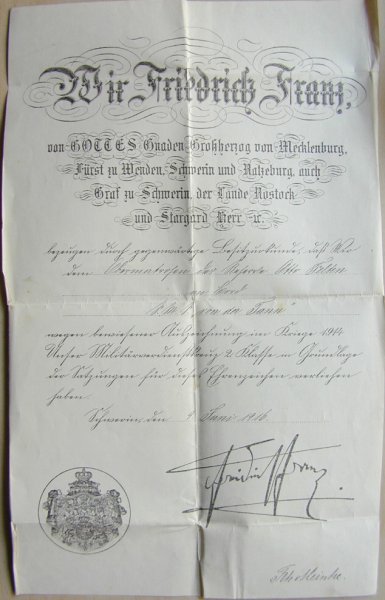 Wir Friedrich Franz,
von GOTTES Gnaden Großherzog von Mecklenburg,
Fürst zu Wenden, Schwerin und Ratzeburg, auch
Graf zu Schwerin, der Lande Rostock
und Stargard Herr &c.
bezeugen durch gegenwärtige Besitzurkunde, daß Wir
dem Obermatrosen der Reserve Otto
an Bord
S.M.S. "von der Tann"
wegen bewiesener Auszeichnung im Kriege 1914
Unser Militärverdienstkreuz 2. Klasse in Grundlage
der Satzungen für dieses Ehrenzeichen verliehen
haben.
Schwerin, den 9 Juni 1916.
Friedrich Franz